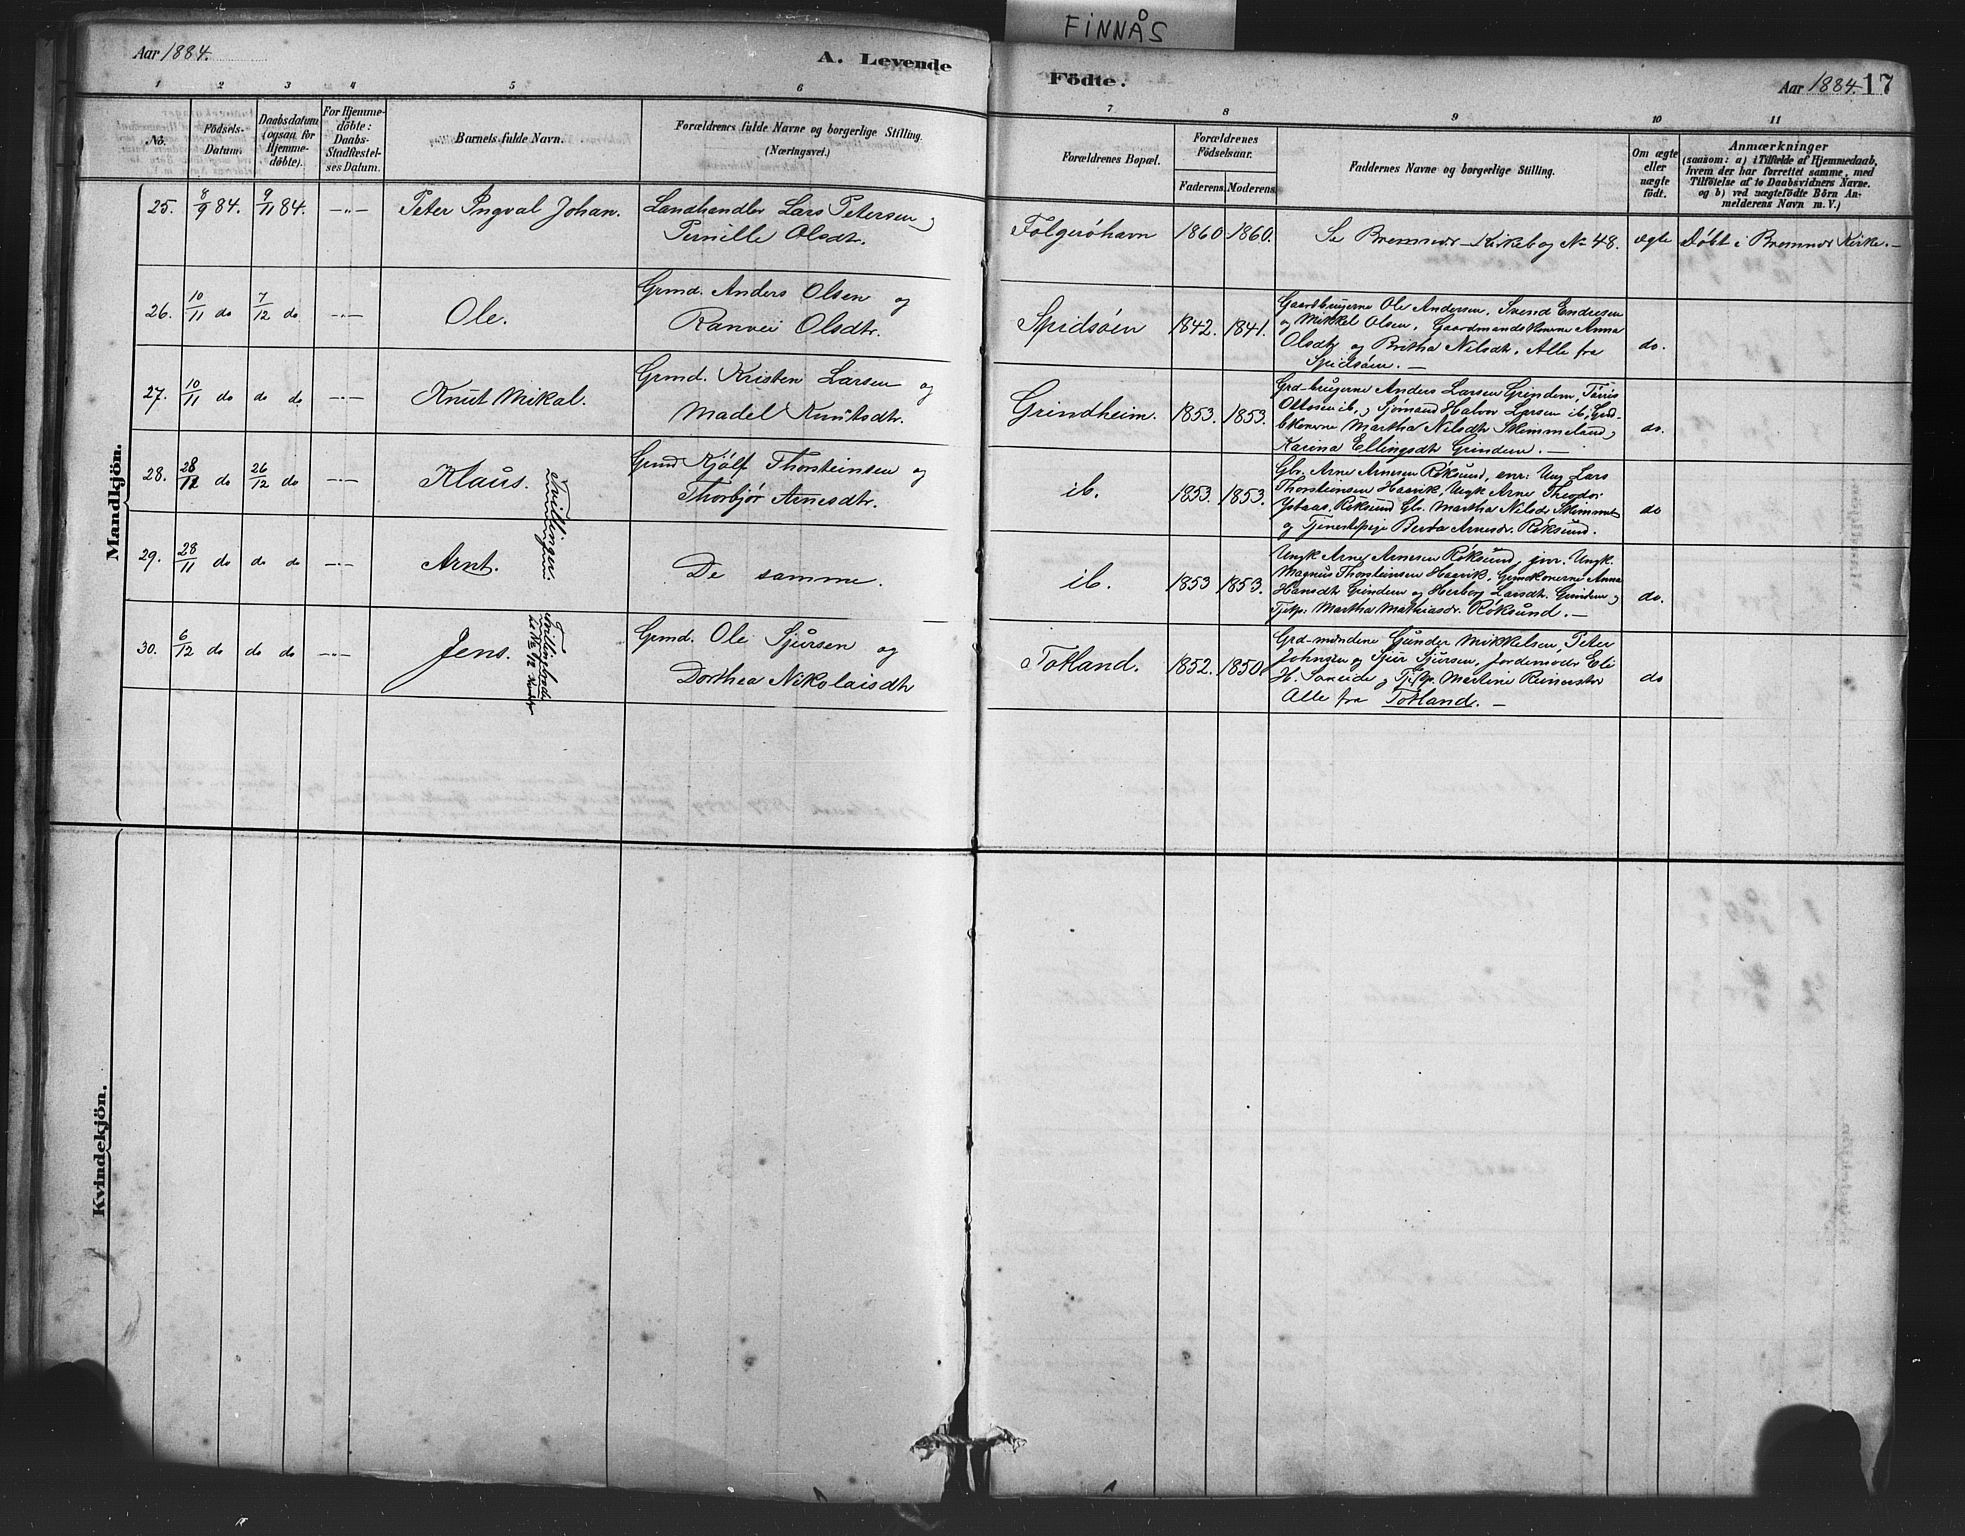 FINNÅS
Aar 1884.
A. Levende
Födte.
Aar 1884.
17
1 2 3 4 5 6 7 8 9 10 11
No.
Födsels-
Datum.
Daabsdatum
(ogsaa for
Hjemme-
döbte).
For Hjemme-
döbte:
Daabs-
Stadfæstel-
ses Datum.
Barnets fulde Navn.
Forældrenes fulde Navne og borgerlige Stilling.
(Næringsvei.)
Forældrenes Bopæl.
Forældrenes
Födselsaar.
Faderens. Moderens.
Faddernes Navne og borgerlige Stilling.
Om ægte
eller
uægte
födt.
Anmærkninger
(saasom: a) i Tilfælde af Hjemmedaab,
hvem der har forrettet samme, med
Tilföielse af to Daabsvidners Navne.
og b) ved uægtefödte Börn An-
melderens Navn m. V.)
Mandkjön.
25. 8/9 84. 9/11 84. -"- Peter Ingval Johan. Landhandler Lars Petersen og
Pernille Olsdtr.
Folgeröhavn 1860 1860. Se Bremnes Kirkebog No 48. ægte Döbt i Bremnes Kirke.-
26. 10/11 do 7/12 do -"- Ole. Grmd. Anders Olsen og
Ranvei Olsdtr.
Spidsöen 1842. 1841.
Gaardbrugerne Ole Andersen, Svend Endresen
og Mikkel Olsen, Gaardmandskonerne Anna
Olsdtr og Britha Nilsdtr. Alle fra
Spidsöen.-
do.
27. 10/11 do do do -"- Knut Mikal. Grmd. Kristen Larsen og
Madel Knutsdtr.
Grindheim. 1853. 1853.
Grd-brugerne Anders Larsen Grindem, Tørris
Ottosen ib, og Sjømand Halvor Larsen ib, Grd-
bkonerne Martha Nilsdtr Skimmeland og
Karina Ellingsdtr Grindem.-
do.
28. 28/11 do 26/12 do -"- Klaus. Grmd Kjølf Thorsteinsen og
Thorbjør Arnesdtr.
ib. 1853. 1853.
Gbr. Arne Arnesen Røksund, enr: Ung Lars
Thorsteinsen Haavik, Ungk Arne Theodor
Ystaas, Røksund Gbr. Martha Nilsdr
og Tjenestepige Berta Arnesdr. Røksund.
do
Tvillinger.
29. 28/11 do do do -"- Arnt. De samme.
ib. 1853 1853.
Ungk Arne Arnesen Røksund, jnr. Ungk.
Magnus Thorsteinsen Haavik, Grmdkonerne Anna
Hansdtr Grindem og Herborg Larsdtr. Grindem og
Tjpg. Martha Mathiasdr. Røksund.-
do.
30. 6/12 do do do -"- Jens. Grmd. Ole Sjursen og
Dorthea Nikolaisdtr
Totland. 1852. 1850.
Grd-mændene Gunder Mikkelsen, Peter
Johnsen og Sjur Sjursen, Jordemoder Eli
H. og Tjpg. Martine
Alle fra Totland.-
do
Kvindekjön.